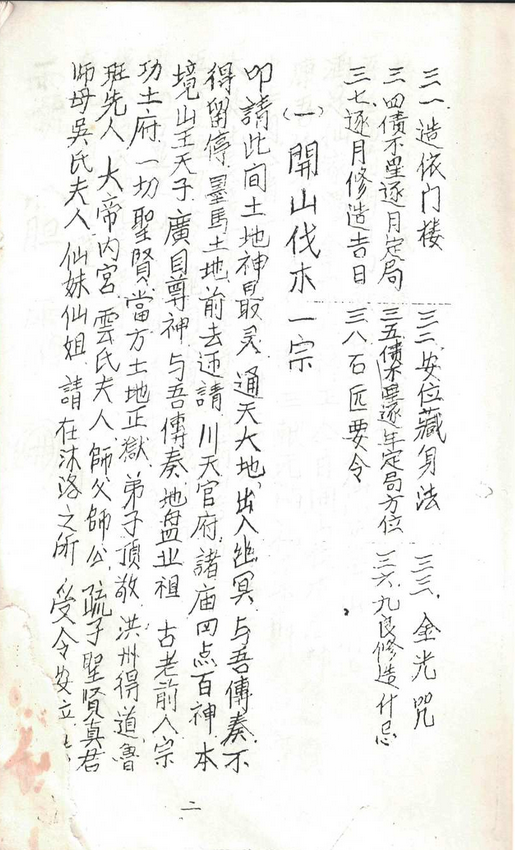 三一、造依门楼　三二、安位藏身法　三三、金光咒
三四债不星逐月定局　三五债不星逐年定局方位　三六、九良修造什忌
三七、逐月修造吉日　三八石匠要令
（一）開山伐木一宗
叩請此间土地神最灵、通天大地、出入幽冥、与吾傳奏、不
得留停、墨馬土地、前去迎請、川天官府、諸庙四点百神、本
境山王天子、廣目尊神、与吾傳奏、地盘业祖、古老前人、宗
功土府、一切聖賢、當方土地正獄、弟子頂敬、洪州得道、魯
班先人、大帝内宮、雲氏夫人、師父師公、疏子聖賢真君
师母吳氏夫人、仙妹仙姐、請在沐洛之所、受令安立
二